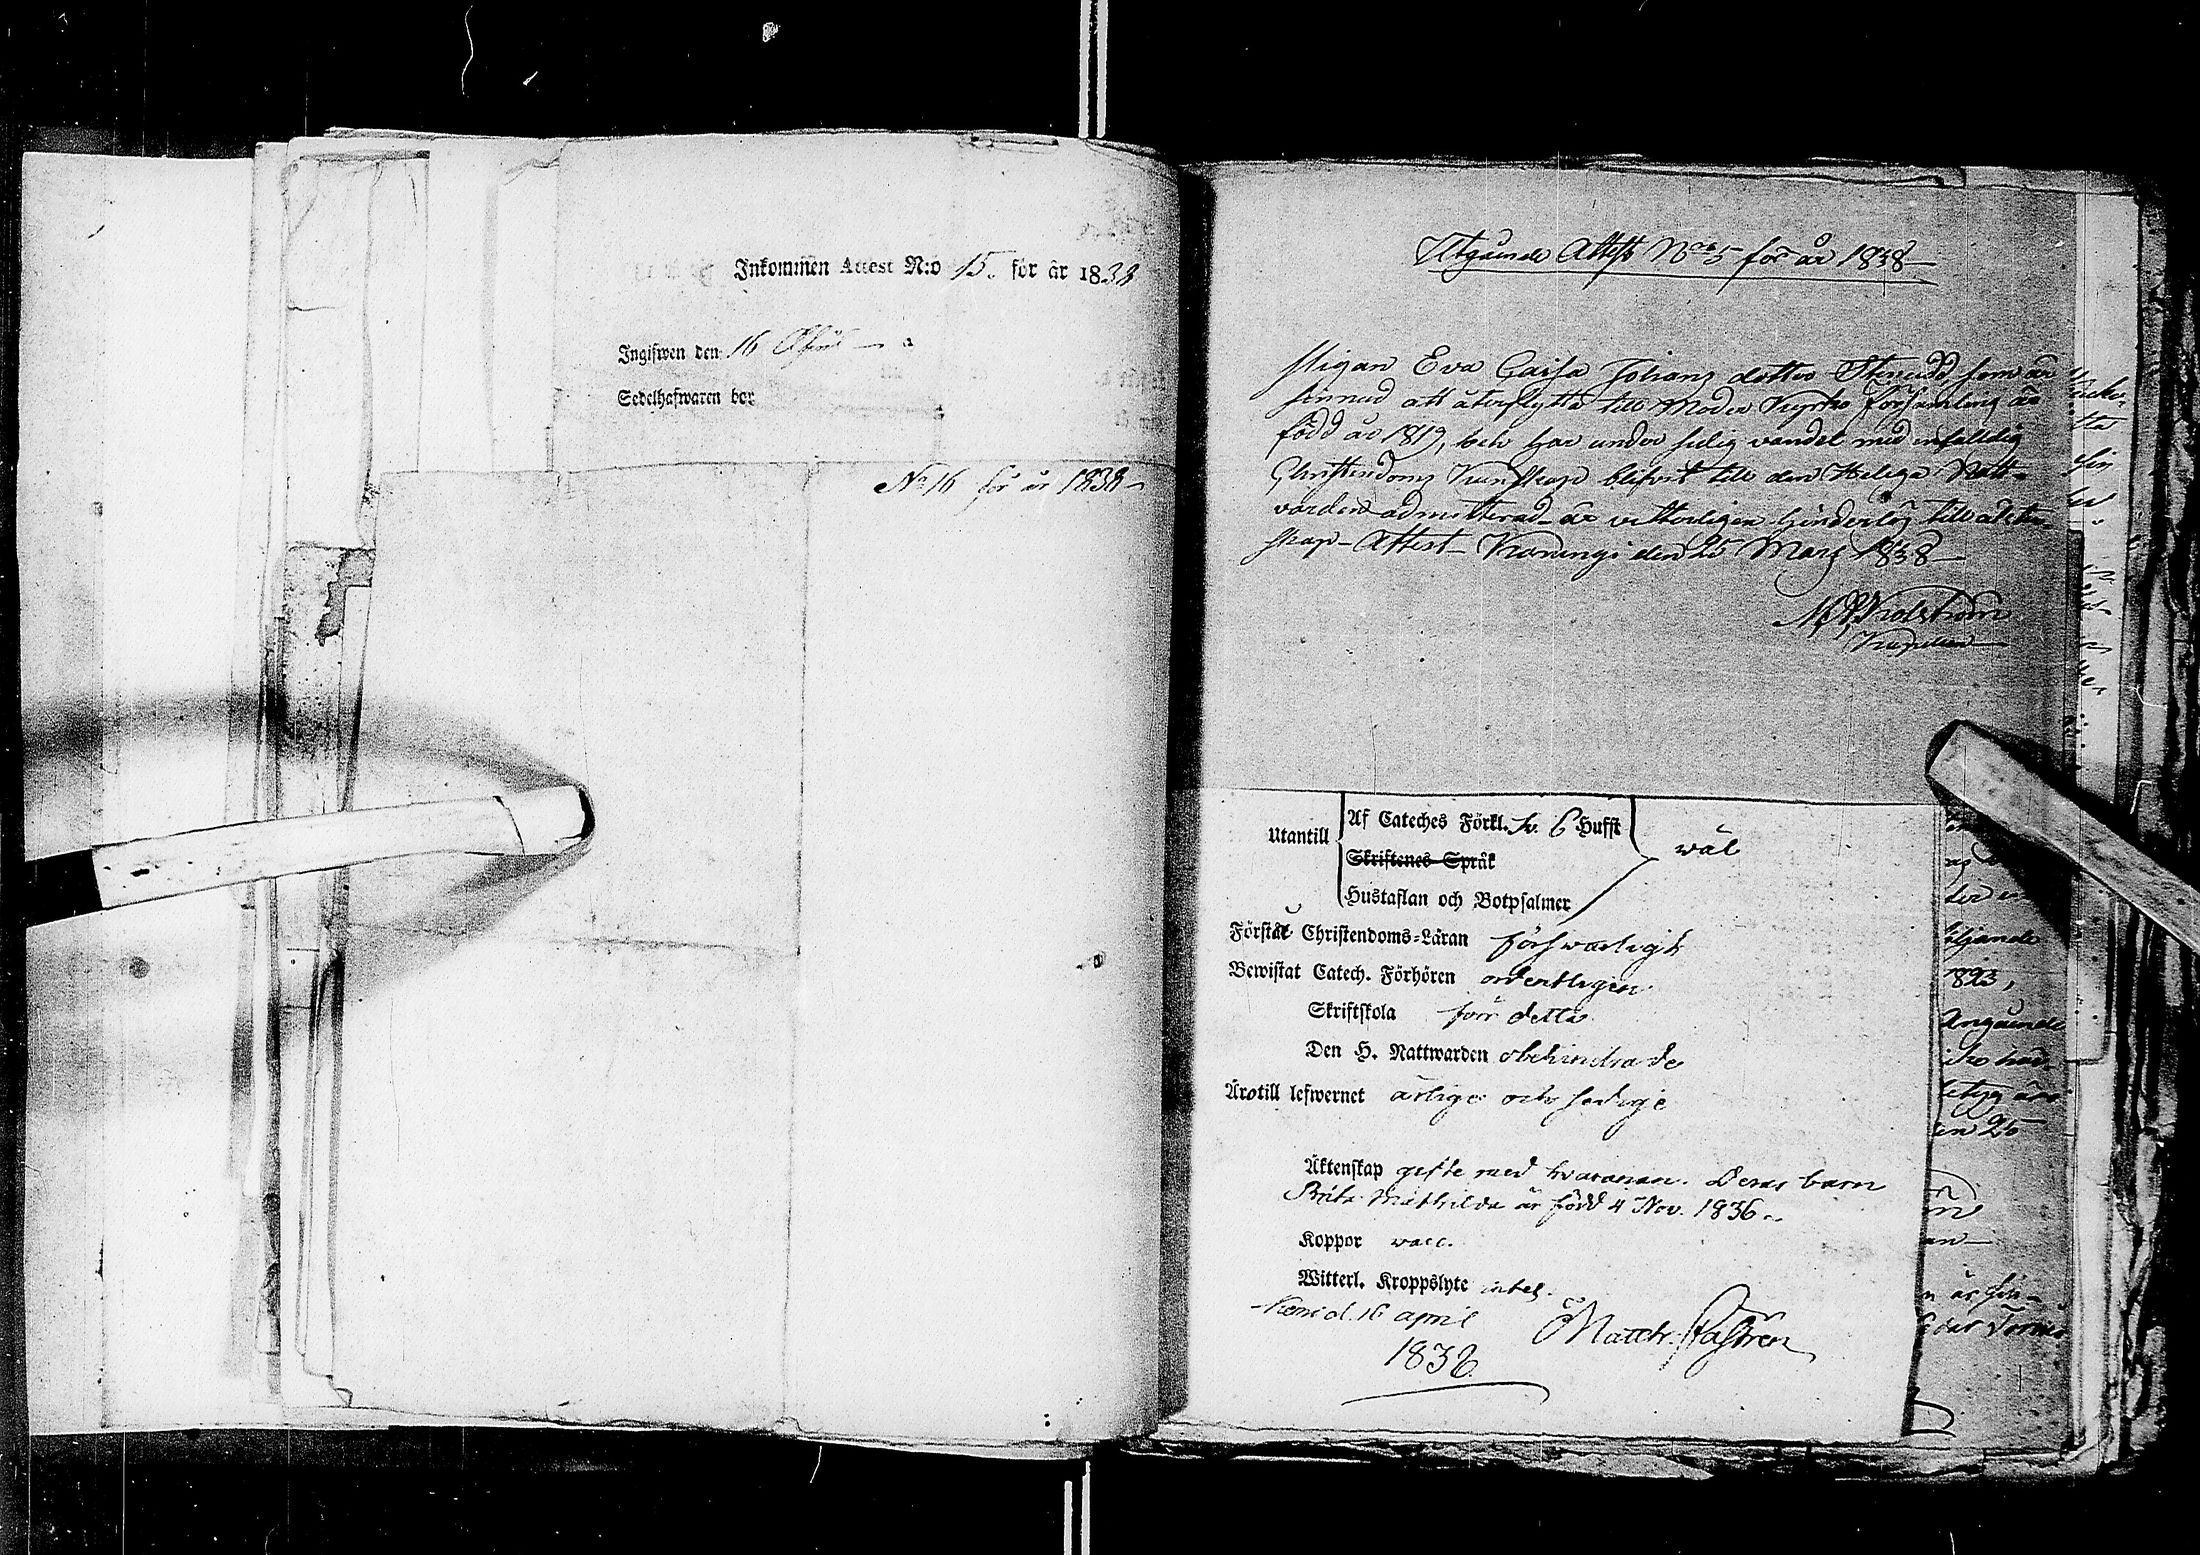 Inkommen Attest N:o 15. för år 1838
Ingifwen den 16 April
Sedelhafwaren bor
No 16 för år 1838
Utgående Attest No 5 för år 1838
Pigan Eva Caisa Johans dotter som är
sinnad att återflytta till Moder Kyrko församling är
född år 1819, och har under sedig vandel med enfalldig
Christendoms Kunskap blifvit till den Heliga Natt-
varden admitterad är vitterligen hinderlös till äkten-
skap Attest Karungi den 25 Mars 1838
Kapellan
Utantill
Af Cateches Förkl. Sv. 6 Hufst
Skriftenes Språk
Hustaflan och Botpsalmer
wäl
Förstå Christendoms-Läran förswarligit
Bewistat Catech. Förhören ordentligen
Skriftskola förr detta
Den H. Nattwarden obehindrade
Äro till lefwernet ärlige och sedige
Äktenskap gifte med hvarannan. Deras barn
Brita Mathilda är född 4 Nov. 1836
Koppor vacc.
Witterl. Kroppslyte intet.
Kemi d. 16 april
1838
Matth. Castrén
ljande
1823,
Angående
en 25